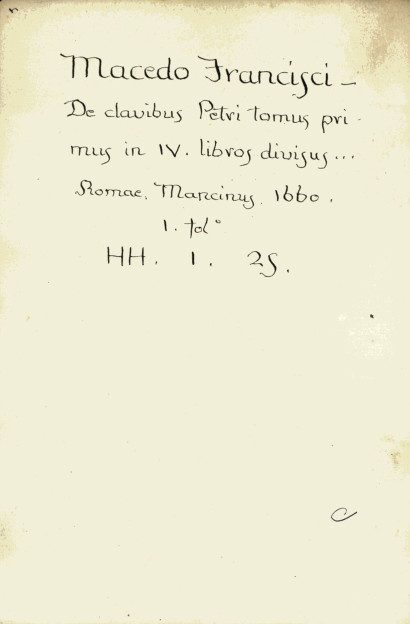 Macedo Francisci –
De clavibus Petri tomus pri-
mus in IV. libros divisus...
Romae, Mancinus, 1660.
1. folº
HH. 1. 25.
C